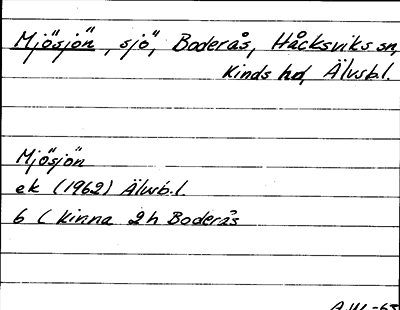 Mjösjön, sjö, Boderås, Håcksviks sn,
Kinds hd, Älvsbl.
Mjösjön
ek (1962) Älvsb.l.
6 ( Kinna 2h Boderås